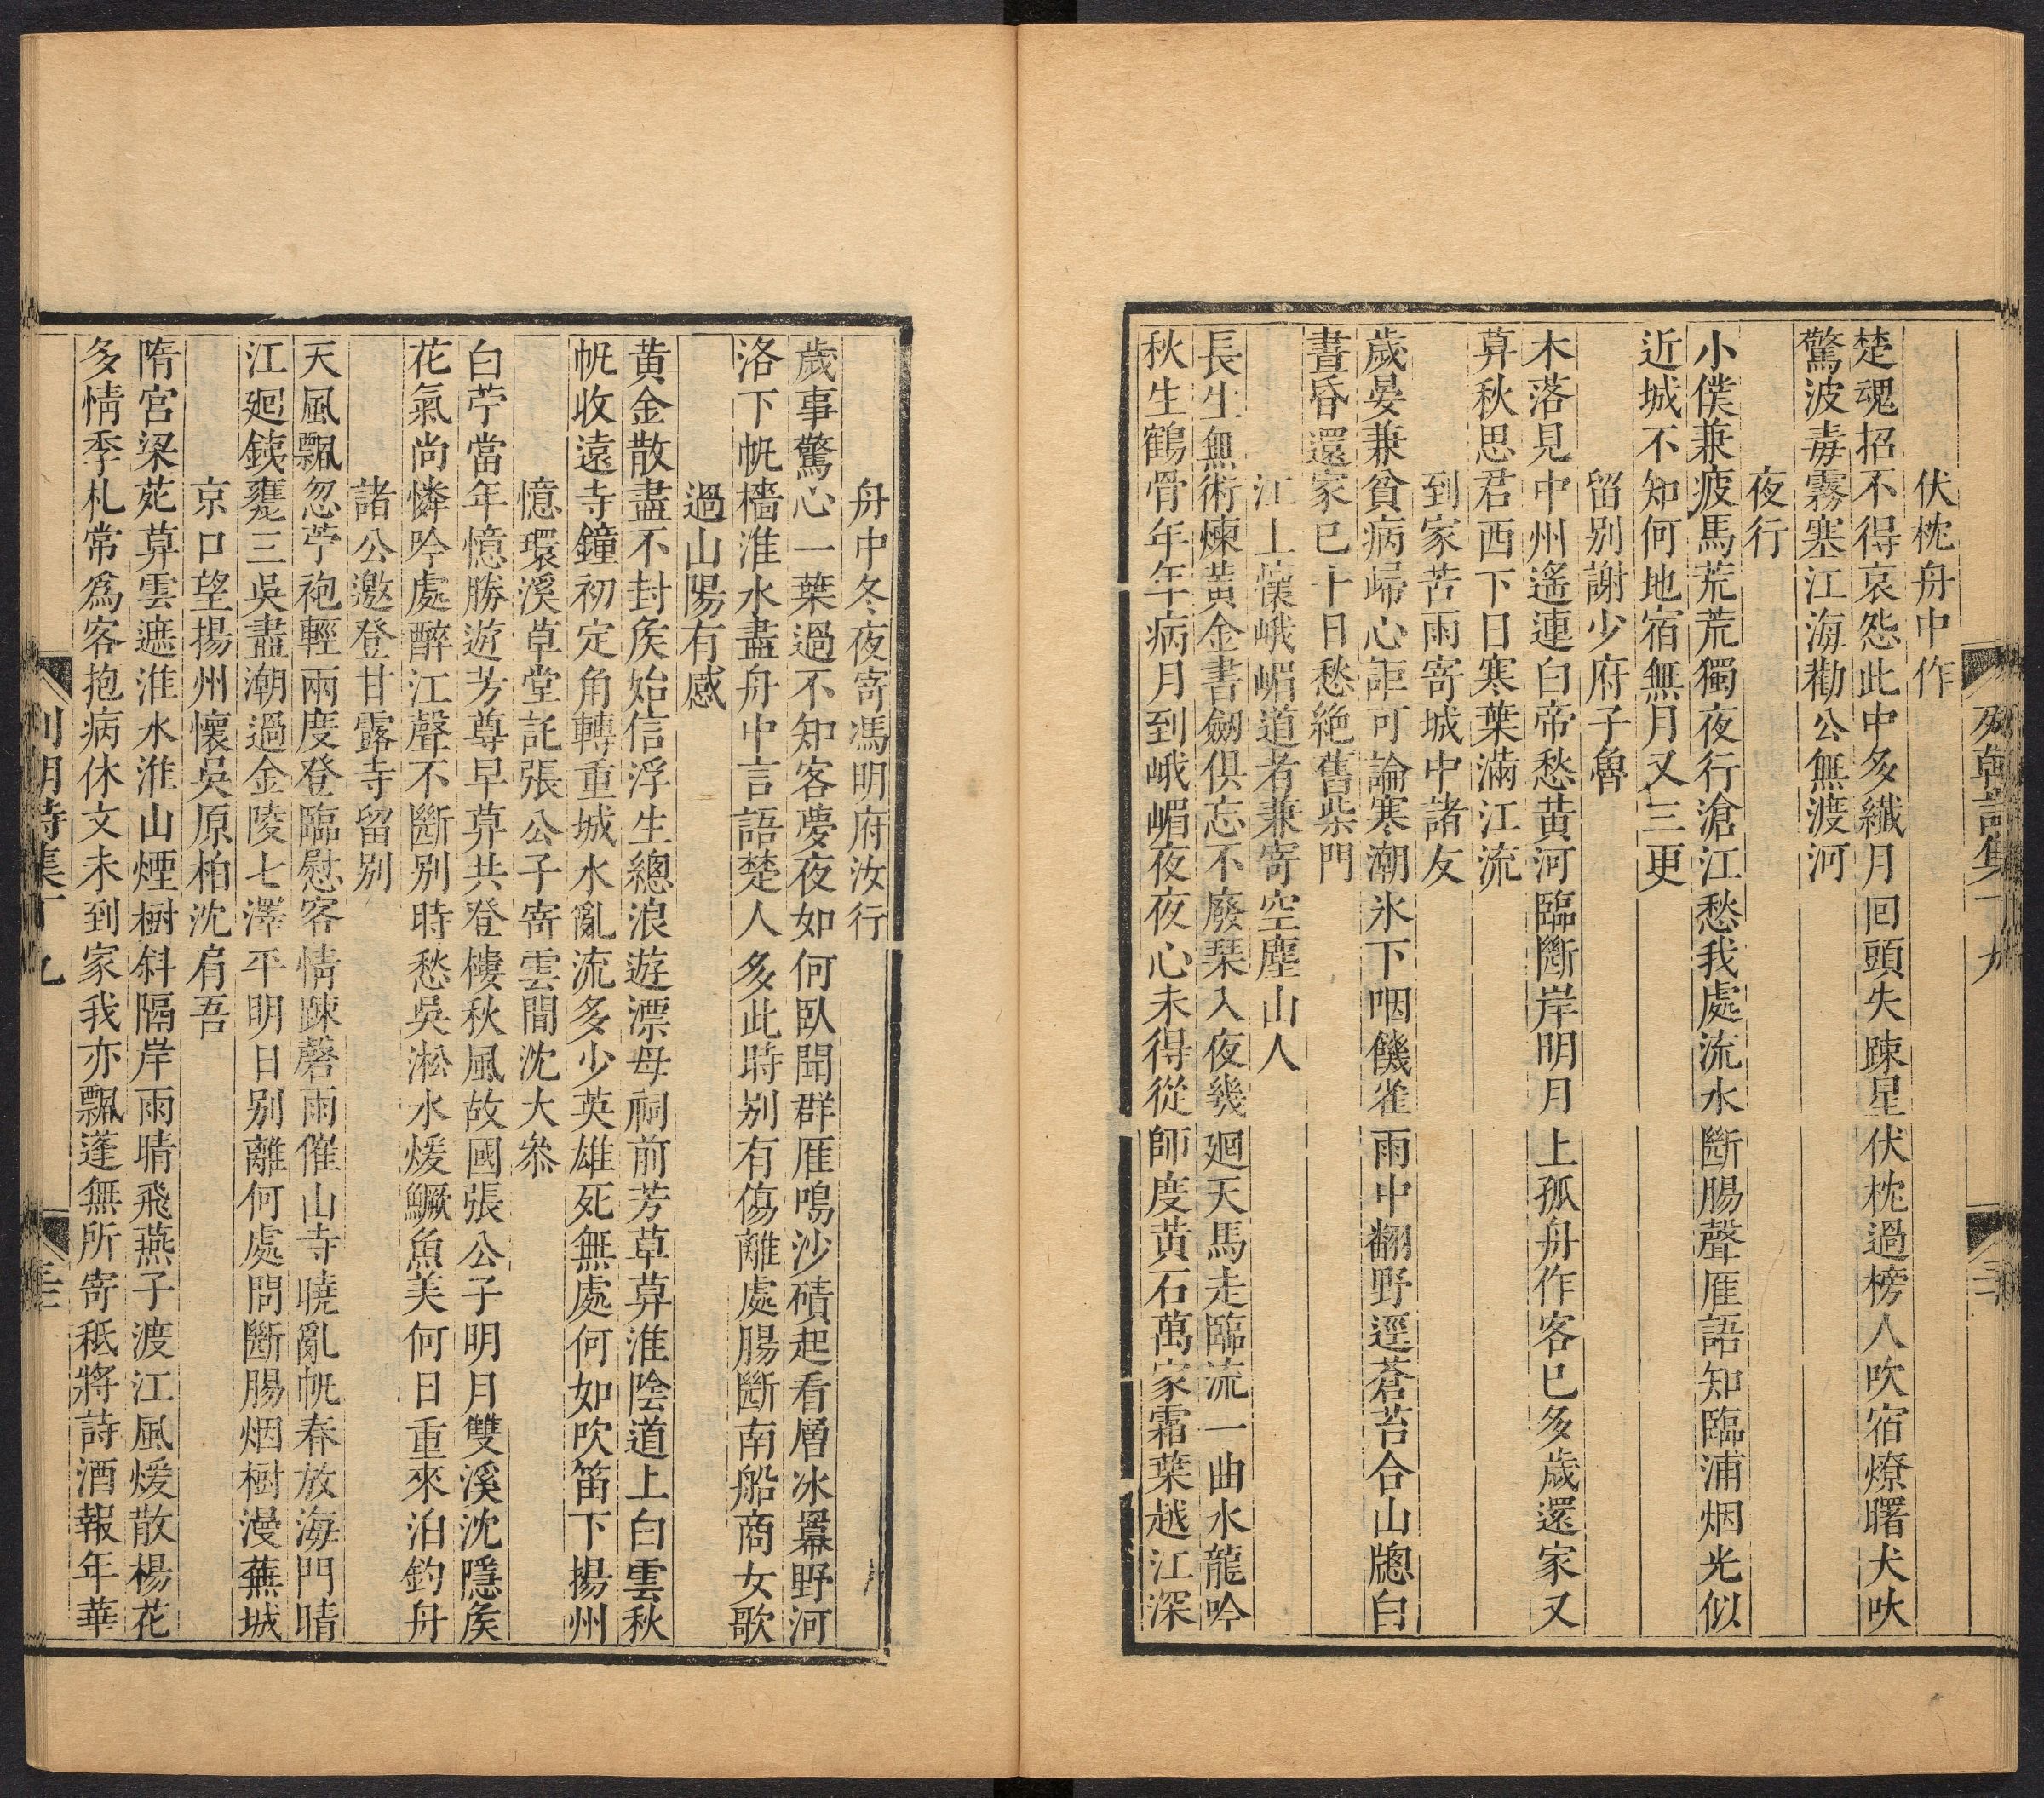 伏枕舟中作
楚魂招不得哀怨此中多纖月回頭失踈星伏枕過榜人吹宿燎曙犬吠
驚波毒霧塞江海勸公無渡河
夜行
小僕兼疲馬荒荒獨夜行滄江愁我處流水斷腸聲雁語知臨浦烟光似
近城不知何地宿無月又三更
留别謝少府子魯
木落見中州遙連白帝愁黃河臨斷岸明月上孤舟作客已多歲還家又
算秋思君西下日寒葉滿江流
到家苦雨寄城中諸友
歲晏兼貧病歸心詎可論寒潮氷下咽饑雀雨中翻野逕蒼苔合山牕白
晝昏還家已十日愁絶舊柴門
江上懷峨嵋道者兼寄空塵山人
長生無術煉黃金書劒俱忘不廢琹入夜幾廻天馬走臨流一曲水龍吟
秋生鶴骨年年病月到峨嵋夜夜心未得從師度黃石萬家霜葉越江深
舟中冬夜寄馮明府汝行
歲事驚心一葉過不知客夢夜如何臥聞群雁鳴沙磧起看層冰羃野河
洛下帆檣淮水盡舟中言語楚人多此時别有傷離處腸斷南船商女歌
過山陽有感
黃金散盡不封矦始信浮生總浪遊漂母祠前芳草算淮陰道上白雲秋
帆收遠寺鐘初定角轉重城水亂流多少英雄死無處何如吹笛下揚州
憶環溪草堂託張公子寄雲間沈大叅
白苧當年憶勝遊芳尊早算共登樓秋風故國張公子明月雙溪沈隱矦
花氣尚憐吟處醉江聲不斷别時愁吳淞水煖鱖魚美何日重來泊釣舟
諸公邀登甘露寺留别
天風飄忽苧袍輕兩度登臨慰客情踈磬雨催山寺曉亂帆春放海門晴
江廻鐵甕三吳盡潮過金陵七澤平明日别離何處問斷腸烟樹漫蕪城
京口望揚州懷吳原柏沈肩吾
隋宮梁苑算雲遮淮水淮山煙樹斜隔岸雨晴飛燕子渡江風煖散楊花
多情季札常爲客抱病休文未到家我亦飄蓬無所寄秪將詩酒報年華